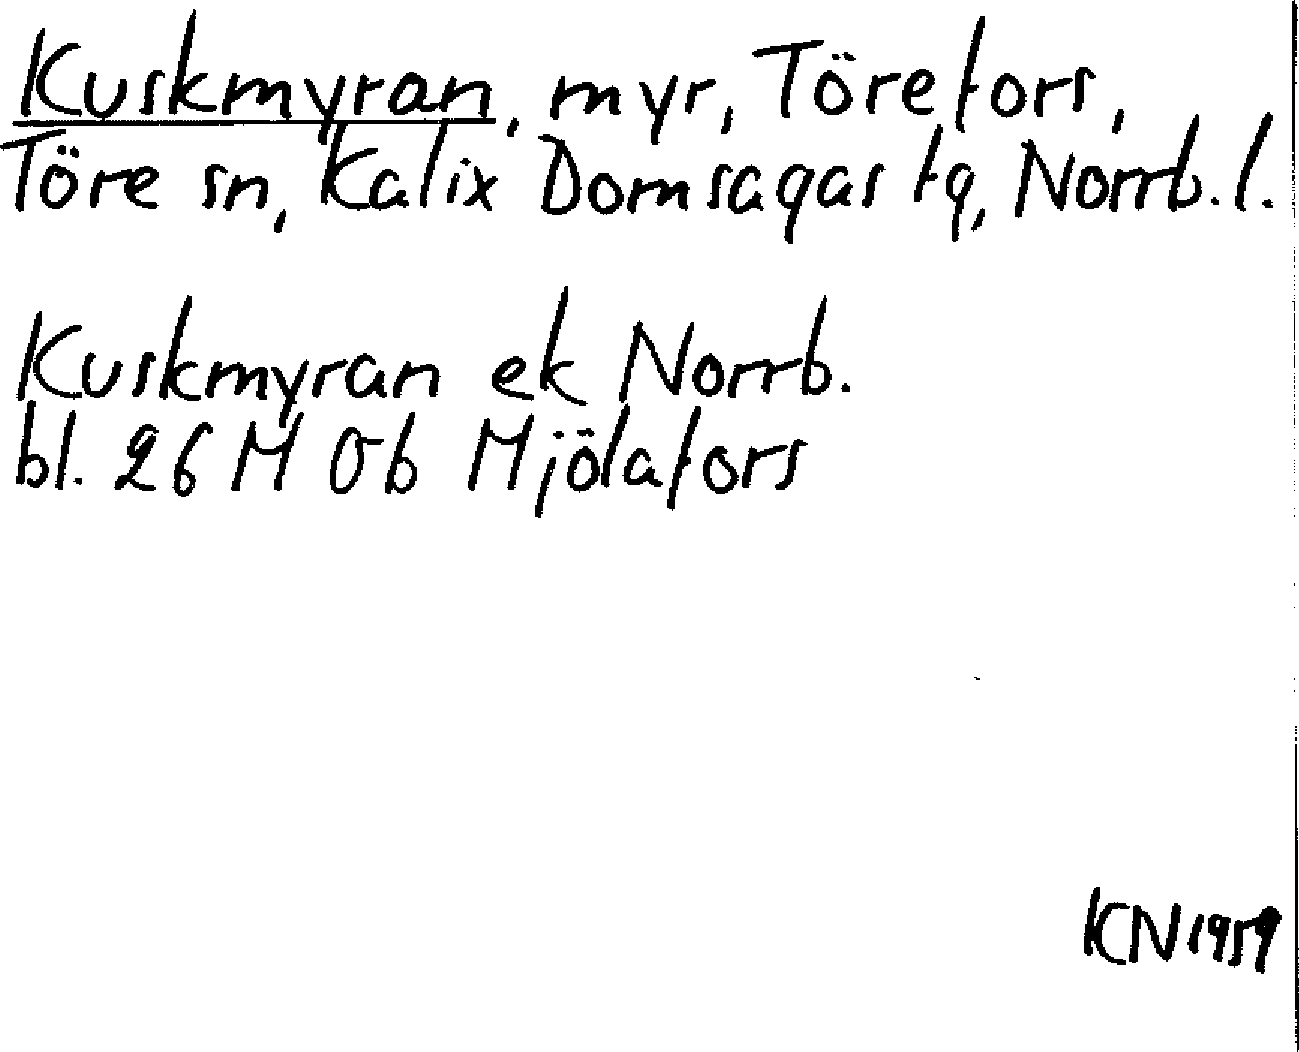 Kuskmyran, myr, Törefors,
Töre sn, Kalix Domsagas tg, Norrb. l.
Kuskmyran ek Norrb.
bl. 26 M Ob Mjölafors
KN 1959